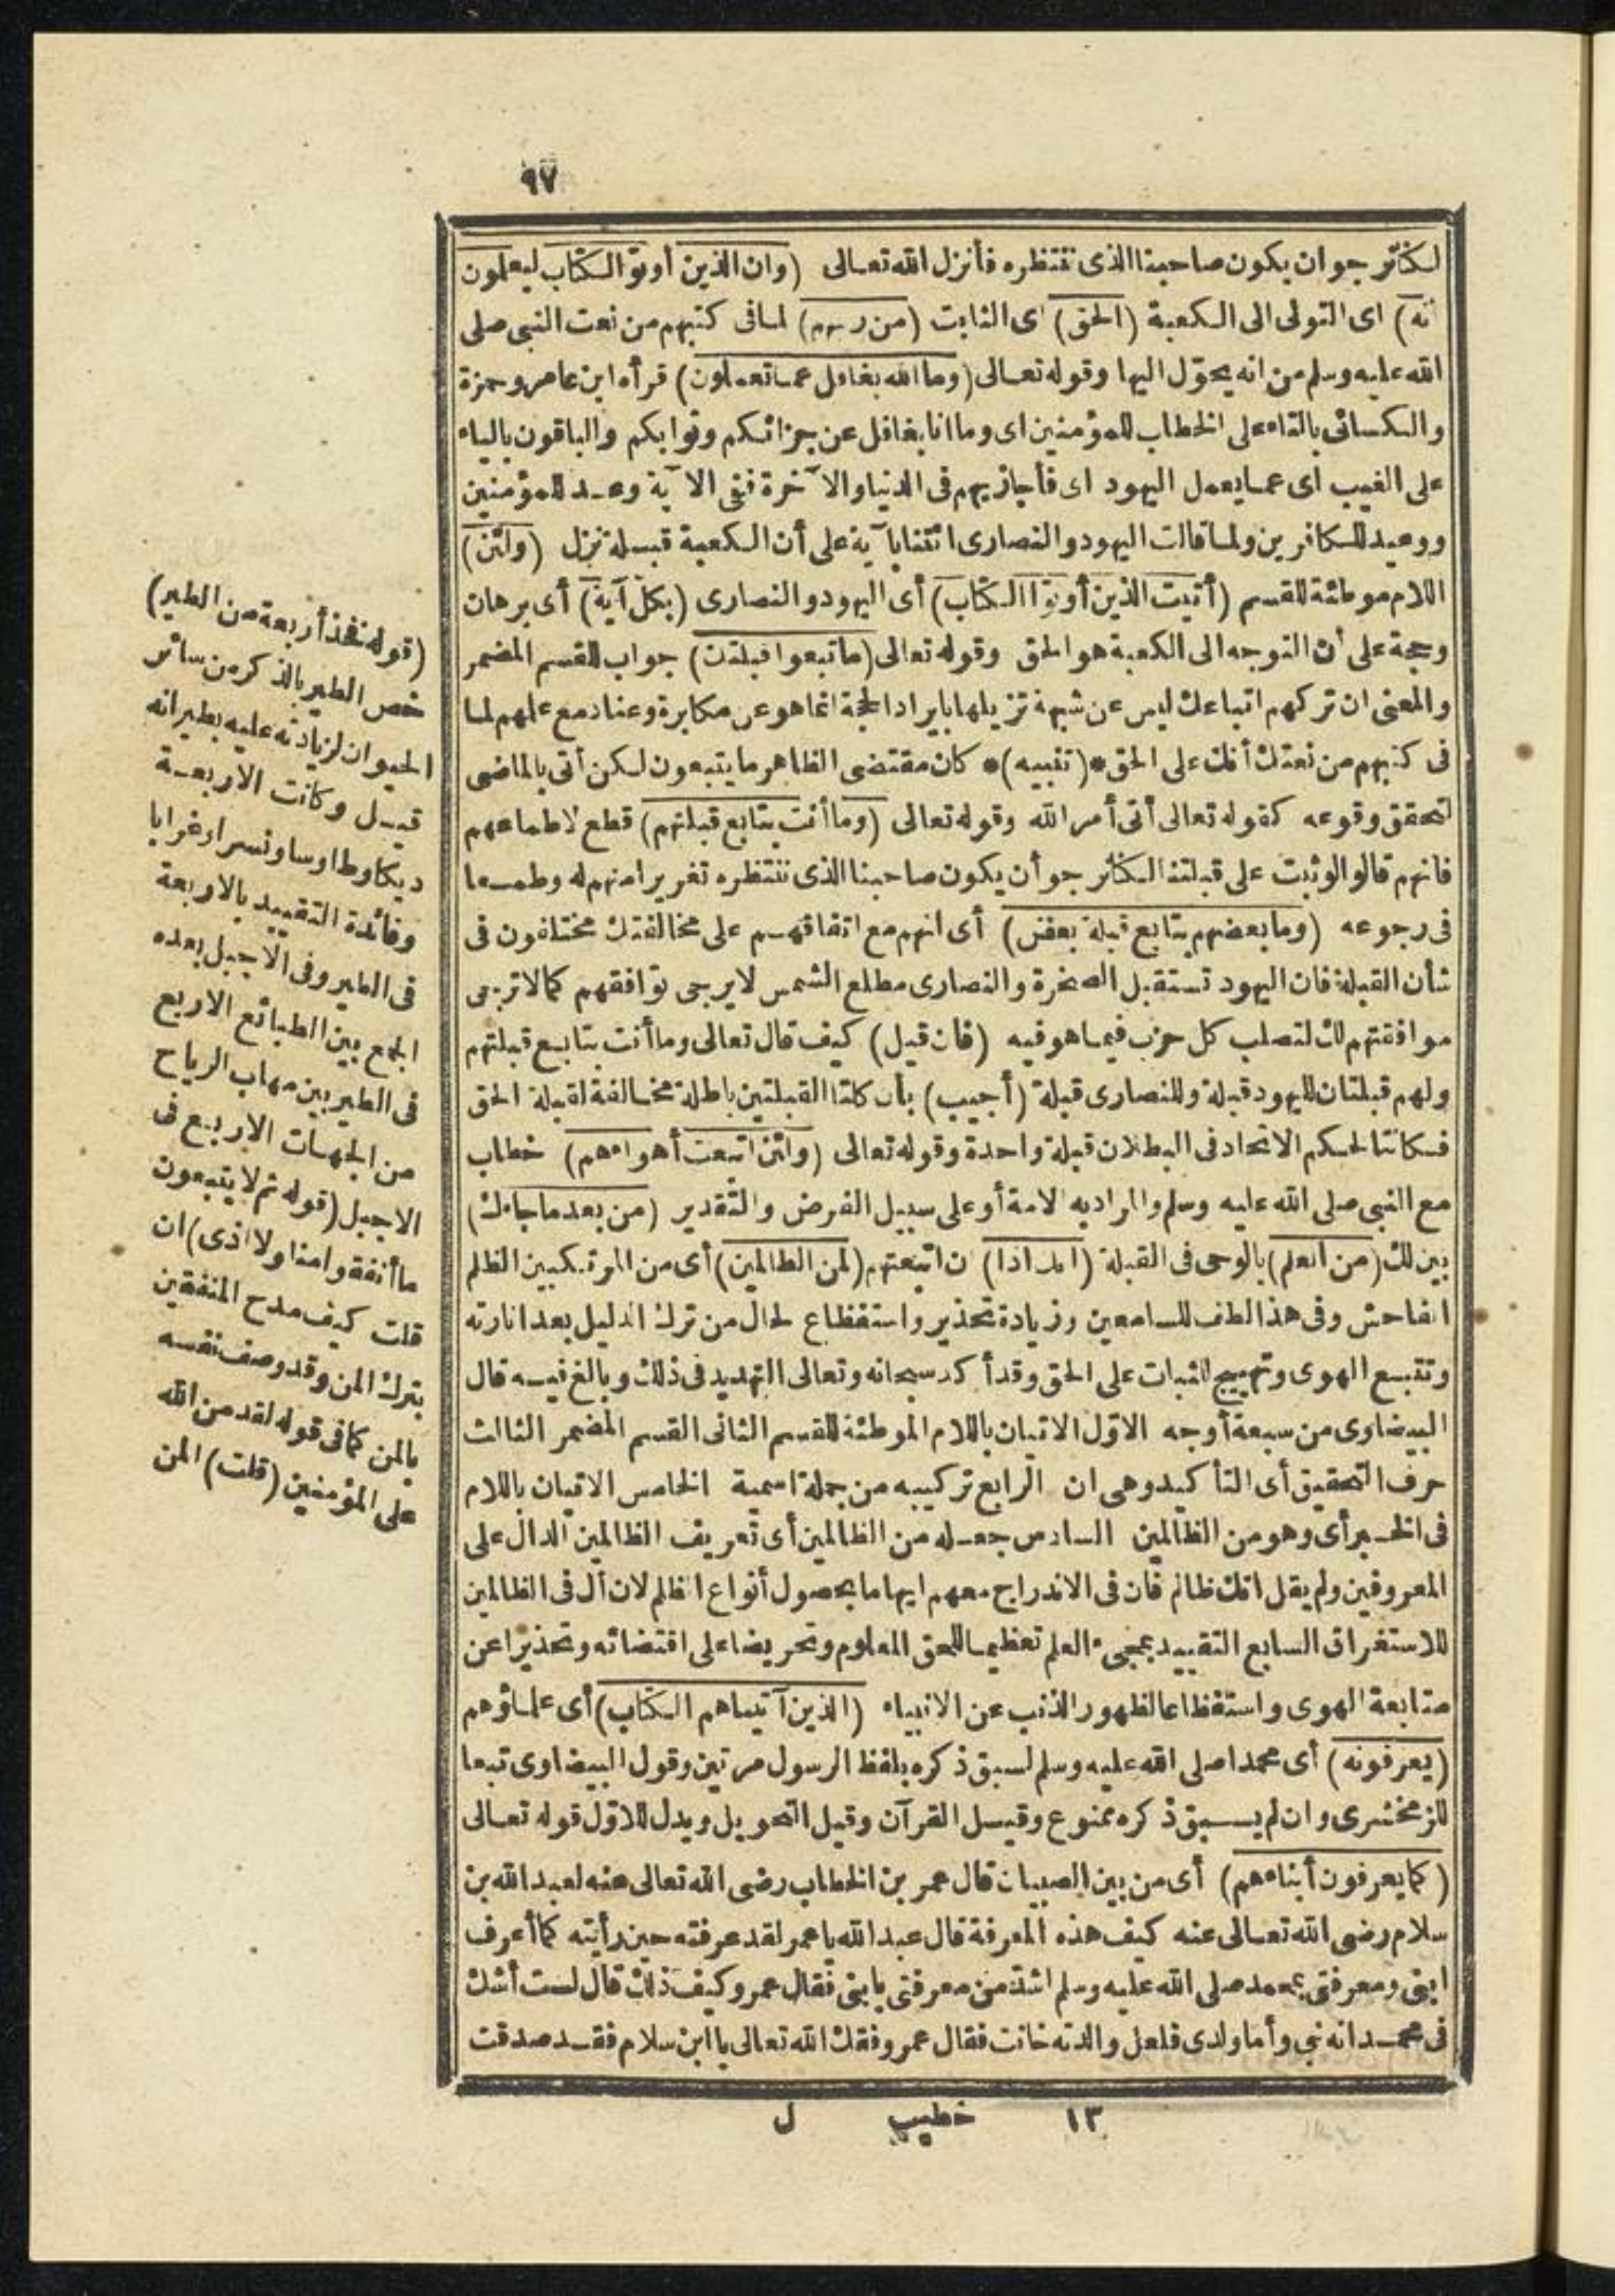 ٩٧
لكنّا نرجو ان يكون صاحبنا الذى ننتظره فأنزل الله تعالى (وان الذين أوتوا الكتاب ليعلمون
انه) اى التولى الى الكعبة (الحق) اى الثابت (من ربهم) لما فى كتبهم من نعت النبى صلى
الله عليه وسلم من انه يحوّل اليها وقوله تعالى (وما الله بغافل عما تعملون) قرأه ابن عامر وحمزة
والكسائى بالتاء على الخطاب للمؤمنين اى وما انا بغافل عن جزائكم وثوابكم والباقون بالياء
على الغيب اى عما يعمل اليهود اى فأجازيهم فى الدنيا والآخرة ففى الآية وعد للمؤمنين
ووعيد للكافرين ولما قالت اليهود والنصارى ائتنا بآية على أن الكعبة قبلة نزل (ولئن)
اللام موطئة للقسم (أتيت الذين أوتوا الكتاب) أى اليهود والنصارى (بكل آية) أى برهان
وحجة على أن التوجه الى الكعبة هو الحق وقوله تعالى (ما تبعوا قبلتك) جواب للقسم المضمر
والمعنى ان تركهم اتباعك ليس عن شبهة تزيلها بايراد الحجة انما هو عن مكابرة وعناد مع علمهم لما
فى كتبهم من نعتك أنك على الحق * (تنبيه) * كان مقتضى الظاهر ما يتبعون لكن أتى بالماضى
لتحقق وقوعه كقوله تعالى أتى أمر الله وقوله تعالى (وما أنت بتابع قبلتهم) قطع لاطماعهم
فانهم قالوا لو ثبت على قبلتنا لكنا نرجو أن يكون صاحبنا الذى ننتظره تغريرا منهم له وطمعا
فى رجوعه (وما بعضهم بتابع قبلة بعض) أى انهم مع اتفاقهم على مخالفتك مختلفون فى
شأن القبلة فان اليهود تستقبل الصخرة والنصارى مطلع الشمس لا يرجى توافقهم كما لا ترجى
موافقتهم لك لتصلب كل حزب فيما هو فيه (فان قيل) كيف قال تعالى وما أنت بتابع قبلتهم
ولهم قبلتان لليهود قبلة وللنصارى قبلة (أجيب) بأن كلتا القبلتين باطلة مخالفة لقبلة الحق
فكانتا لحكم الاتحاد فى البطلان قبلة واحدة وقوله تعالى (ولئن اتبعت أهواءهم) خطاب
مع النبى صلى الله عليه وسلم والمراد به الامة أو على سبيل الفرض والتقدير (من بعد ما جاءك)
بين لك (من العلم) بالوحى فى القبلة (انك اذا) ان اتبعتهم (لمن الظالمين) أى من المرتكبين الظلم
الفاحش وفى هذا لطف للسامعين وزيادة تحذير واستفظاع لحال من ترك الدليل بعد انارته
وتتبع الهوى وتهييج للثبات على الحق وقد أكد سبحانه وتعالى التهديد فى ذلك وبالغ فيه قال
البيضاوى من سبعة أوجه الاوّل الاتيان باللام الموطئة للقسم الثانى القسم المضمر الثالث
حرف التحقيق أى التأكيد وهى ان الرابع تركيبه من جملة اسمية الخامس الاتيان باللام
فى الخبر أى وهو من الظالمين السادس جعله من الظالمين أى تعريف الظالمين الدال على
المعروفين ولم يقل انك ظالم فان فى الاندراج معهم ايهاما بحصول أنواع الظلم لان أل فى الظالمين
للاستغراق السابع التقييد بمجىء العلم تعظيما للحق المعلوم وتحريضا على اقتضائه وتحذيرا عن
متابعة الهوى واستفظاعا لظهور الذنب عن الانبياء (الذين آتيناهم الكتاب) أى علماؤهم
(يعرفونه) أى محمدا صلى الله عليه وسلم لسبق ذكره بلفظ الرسول مرتين وقول البيضاوى تبعا
للزمخشرى وان لم يسبق ذكره ممنوع وقيل القرآن وقيل التحويل ويدل للاوّل قوله تعالى
(كما يعرفون أبناءهم) أى من بين الصبيان قال عمر بن الخطاب رضى الله تعالى عنه لعبد الله بن
سلام رضى الله تعالى عنه كيف هذه المعرفة قال عبد الله يا عمر لقد عرفته حين رأيته كما أعرف
ابنى ومعرفتى بمحمد صلى الله عليه وسلم اشدّ من معرفتى بابنى فقال عمر وكيف ذلك قال لست أشك
فى محمد انه نبى وأما ولدى فلعل والدته خانت فقال عمر وفقك الله تعالى يا ابن سلام فقد صدقت
١٣ خطيب ل
(قوله فخذ أربعة من الطير)
خص الطير بالذكر من سائر
الحيوان لزيادته عليه بطيرانه
قيل وكانت الاربعة
ديكا وطاوسا ونسرا وغرابا
وفائدة التقييد بالاربعة
فى الطير وفى الاجبل بعده
الجمع بين الطبائع الاربع
فى الطير بين مهاب الرياح
من الجهات الاربع فى
الاجبل (قوله ثم لا يتبعون
ما أنفقوا منا ولا اذى) ان
قلت كيف مدح المنفقين
بترك المن وقد وصف نفسه
بالمن كما فى قوله لقد من الله
على المؤمنين (قلت) المن